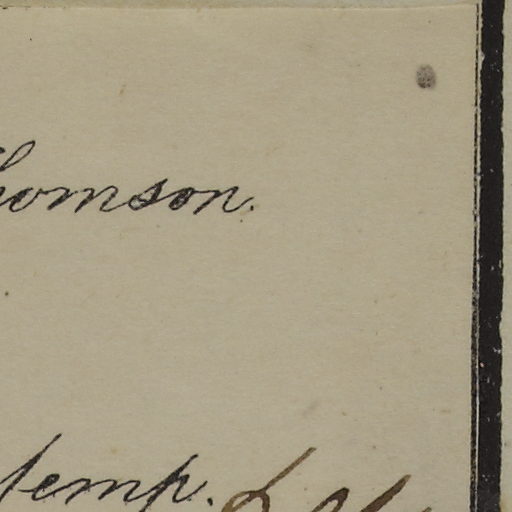 homson.
temp.